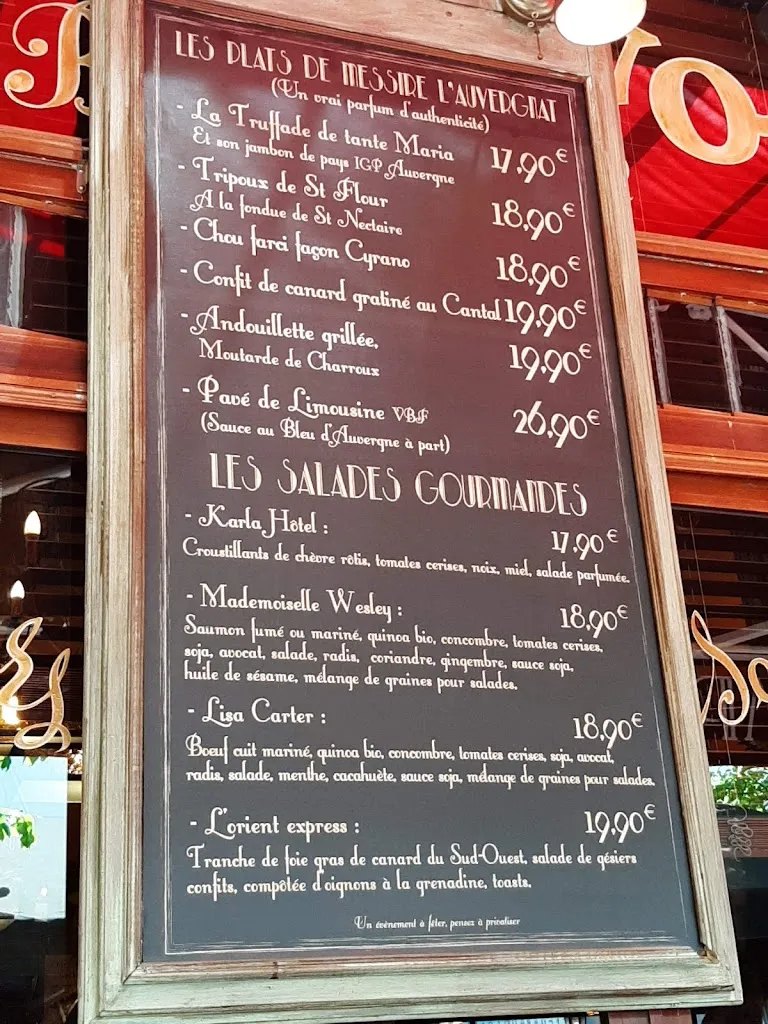 LES PLATS DE MESSIRE L'AUVERGNAT
(Un vrai parfum d'authenticité)
- La Truffade de tante Maria 17,90€
Et son jambon de pays IGP Auvergne
- Tripoux de St Flour 18,90€
A la fondue de St Nectaire
- Chou farci façon Cyrano 18,90€
- Confit de canard gratiné au Cantal 19,90€
- Andouillette grillée, 19,90€
Moutarde de Charroux
- Pavé de Limousine VBF 26,90€
(Sauce au Bleu d'Auvergne à part)
LES SALADES GOURMANDES
- Karla Hôtel : 17,90€
Croustillants de chèvre rôtis, tomates cerises, noix, miel, salade parfumée.
- Mademoiselle Wesley : 18,90€
Saumon fumé ou mariné, quinoa bio, concombre, tomates cerises,
soja, avocat, salade, radis, coriandre, gingembre, sauce soja,
huile de sésame, mélange de graines pour salades.
- Lisa Carter : 18,90€
Boeuf cuit mariné, quinoa bio, concombre, tomates cerises, soja, avocat,
radis, salade, menthe, cacahuète, sauce soja, mélange de graines pour salades.
- L'orient express : 19,90€
Tranche de foie gras de canard du Sud-Ouest, salade de gésiers
confits, compôtée d'oignons à la grenadine, toasts.
Un évènement à fêter, pensez à privatiser